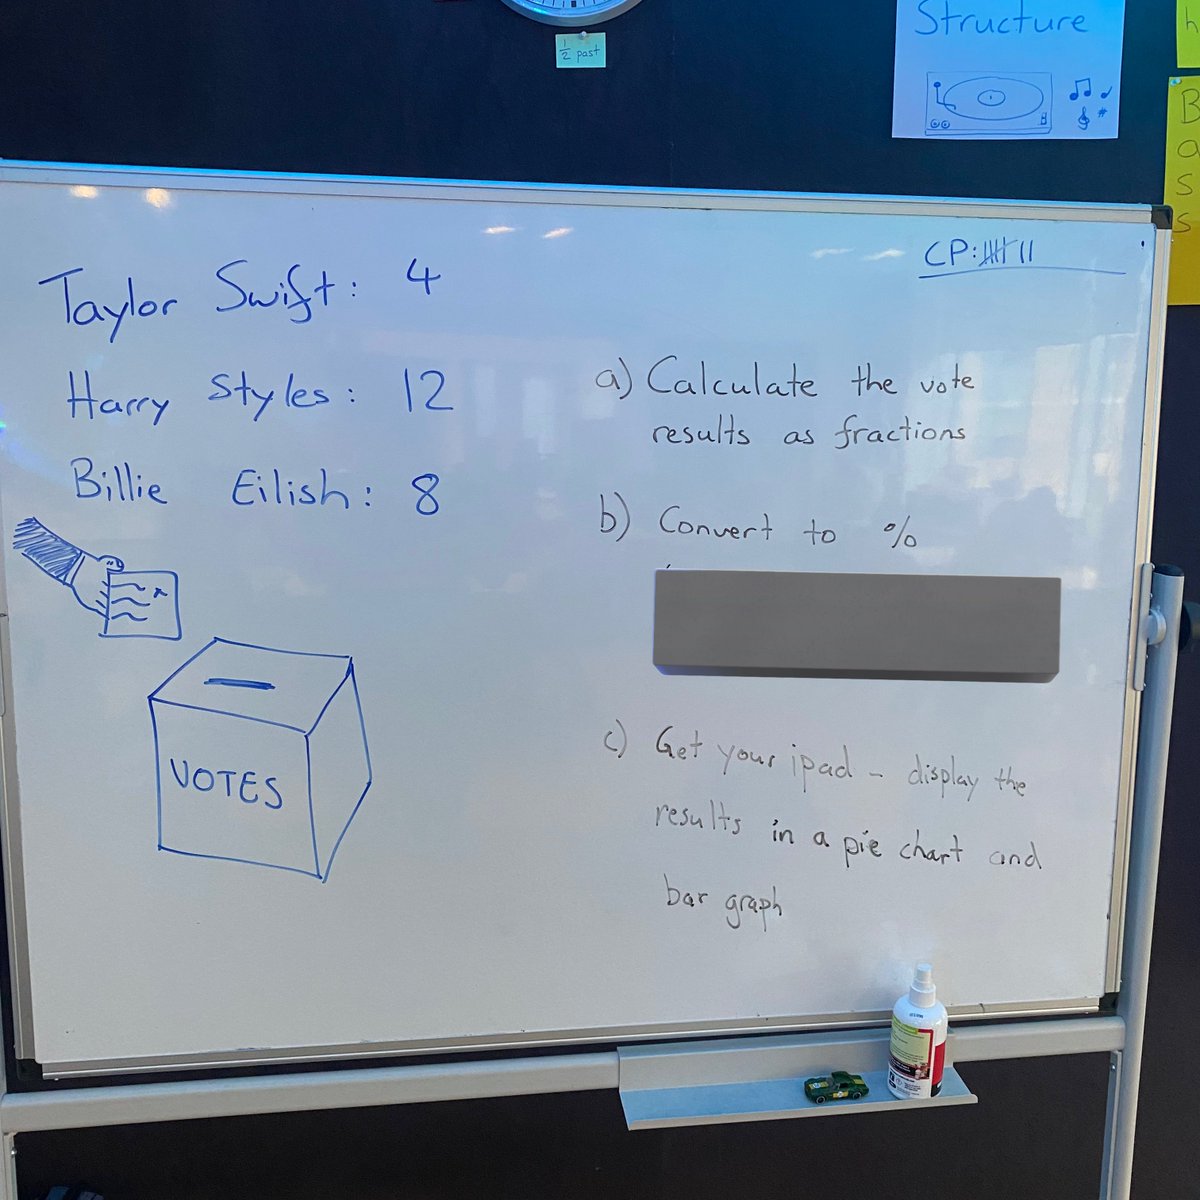 ½ past
Structure
h
B
a
s
s
CP: 𝍸 II
Taylor Swift: 4
Harry Styles: 12
Billie Eilish: 8
VOTES
a) Calculate the vote
results as fractions
b) Convert to %
c) Get your ipad - display the
results in a pie chart and
bar graph